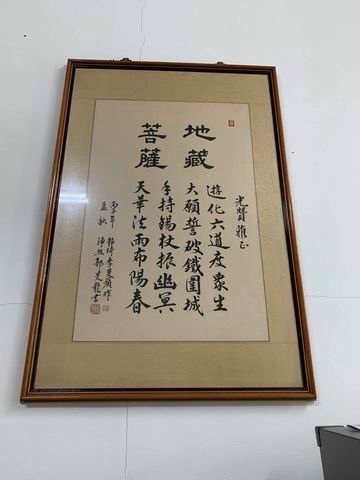 光賢雅正
地藏
菩薩
遊化六道度眾生
大願誓破鐵圍城
手持錫杖振幽冥
天華法雨布陽春
丙子年
孟秋
李
作
郭
龍書